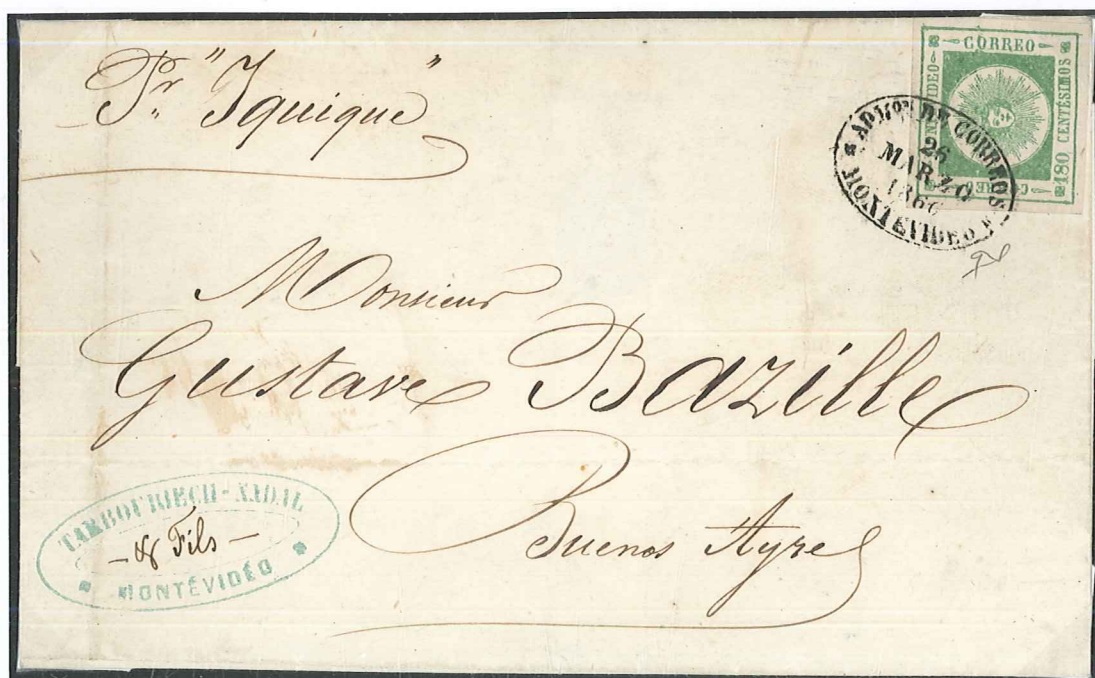 Pr "Iquique"
CORREO
MONTEVIDEO
180 CENTÉSIMOS
CORREO
ADMON DE CORREOS
26
MARZO
1866
MONTEVIDEO
Monsieur
Gustave Bazille
Buenos Ayres
TAMBOURIECH-NADAL
- & Fils -
MONTÉVIDÉO